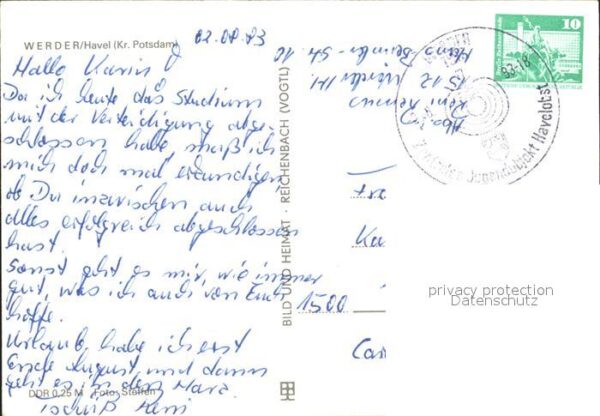 WERDER/Havel (Kr. Potsdam)
02.08.83
Hallo Karin!
Da ich heute das Studium
mit der Verteidigung abge-
schlossen habe, muß ich
mich doch mal erkundigen
ob Du inzwischen auch
alles erfolgreich abgeschlossen
hast.
Sonst geht es mir, wie immer
gut, was ich auch von Euch
hoffe.
Urlaub habe ich erst
Ende August, und dann
geht es in den Harz.
Tschüß
DDR 0,25 M Foto: Steffen
BILD UND HEIMAT · REICHENBACH (VOGTL)
Abs.:
1512 Werder/H.
Hans-Beimler-Str. 10
10
WERDER
83-18
Jugendobjekt Havelobst
Ka
1500
privacy protection
Datenschutz